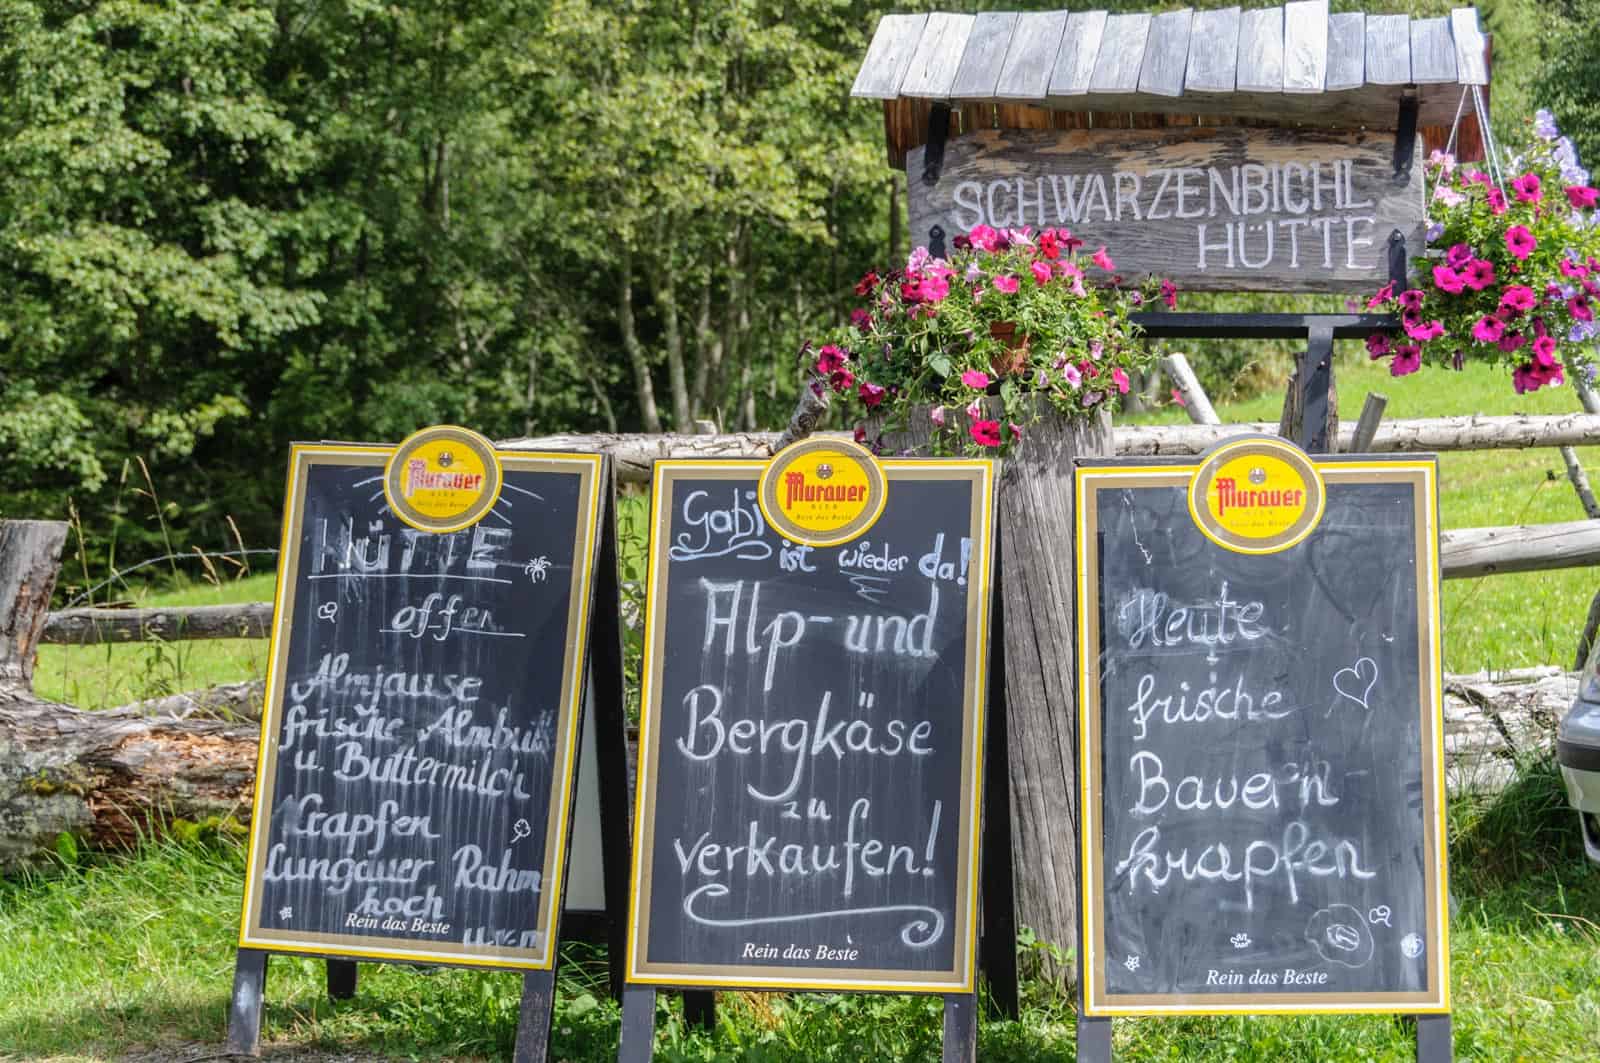 SCHWARZENBICHL
HÜTTE
Murauer
BIER
Rein das Beste
HÜTTE
offen
Almjause
frische Almbutt
u. Buttermilch
Krapfen
Lungauer Rahm
koch
u.v.m
Rein das Beste
Murauer
BIER
Rein das Beste
Gabi
ist wieder da!
Alp- und
Bergkäse
zu
verkaufen!
Rein das Beste
Murauer
BIER
Rein das Beste
Heute
frische
Bauern-
krapfen
Rein das Beste